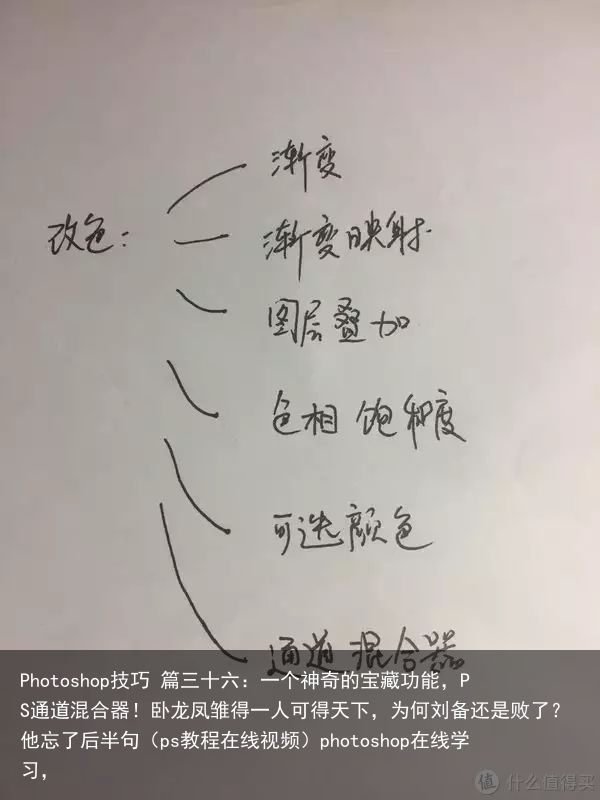 改色：
渐变
渐变映射
图层叠加
色相 饱和度
可选颜色
通道混合器
Photoshop技巧 篇三十六：一个神奇的宝藏功能，P
S通道混合器！卧龙凤雏得一人可得天下，为何刘备还是败了？
他忘了后半句（ps教程在线视频）photoshop在线学
习，
值 什么值得买